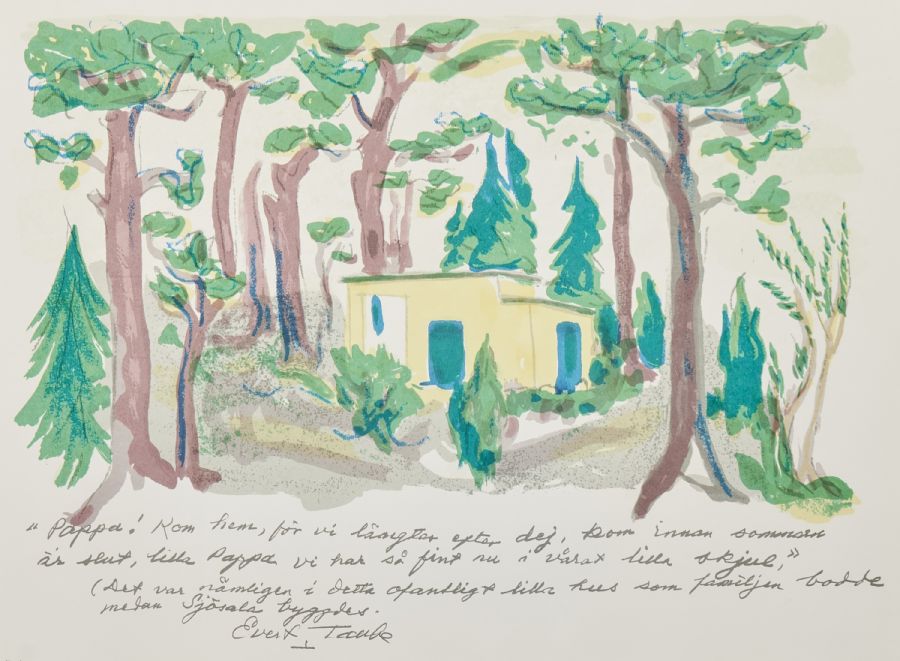 "Pappa! Kom hem, för vi längter efter dej, kom innan sommarn
är slut, lilla Pappa vi har så fint nu i vårat lilla skjul,"
(Det var nämligen i detta ofantligt lilla hus som familjen bodde
medan Sjösala byggdes.
Evert Taube